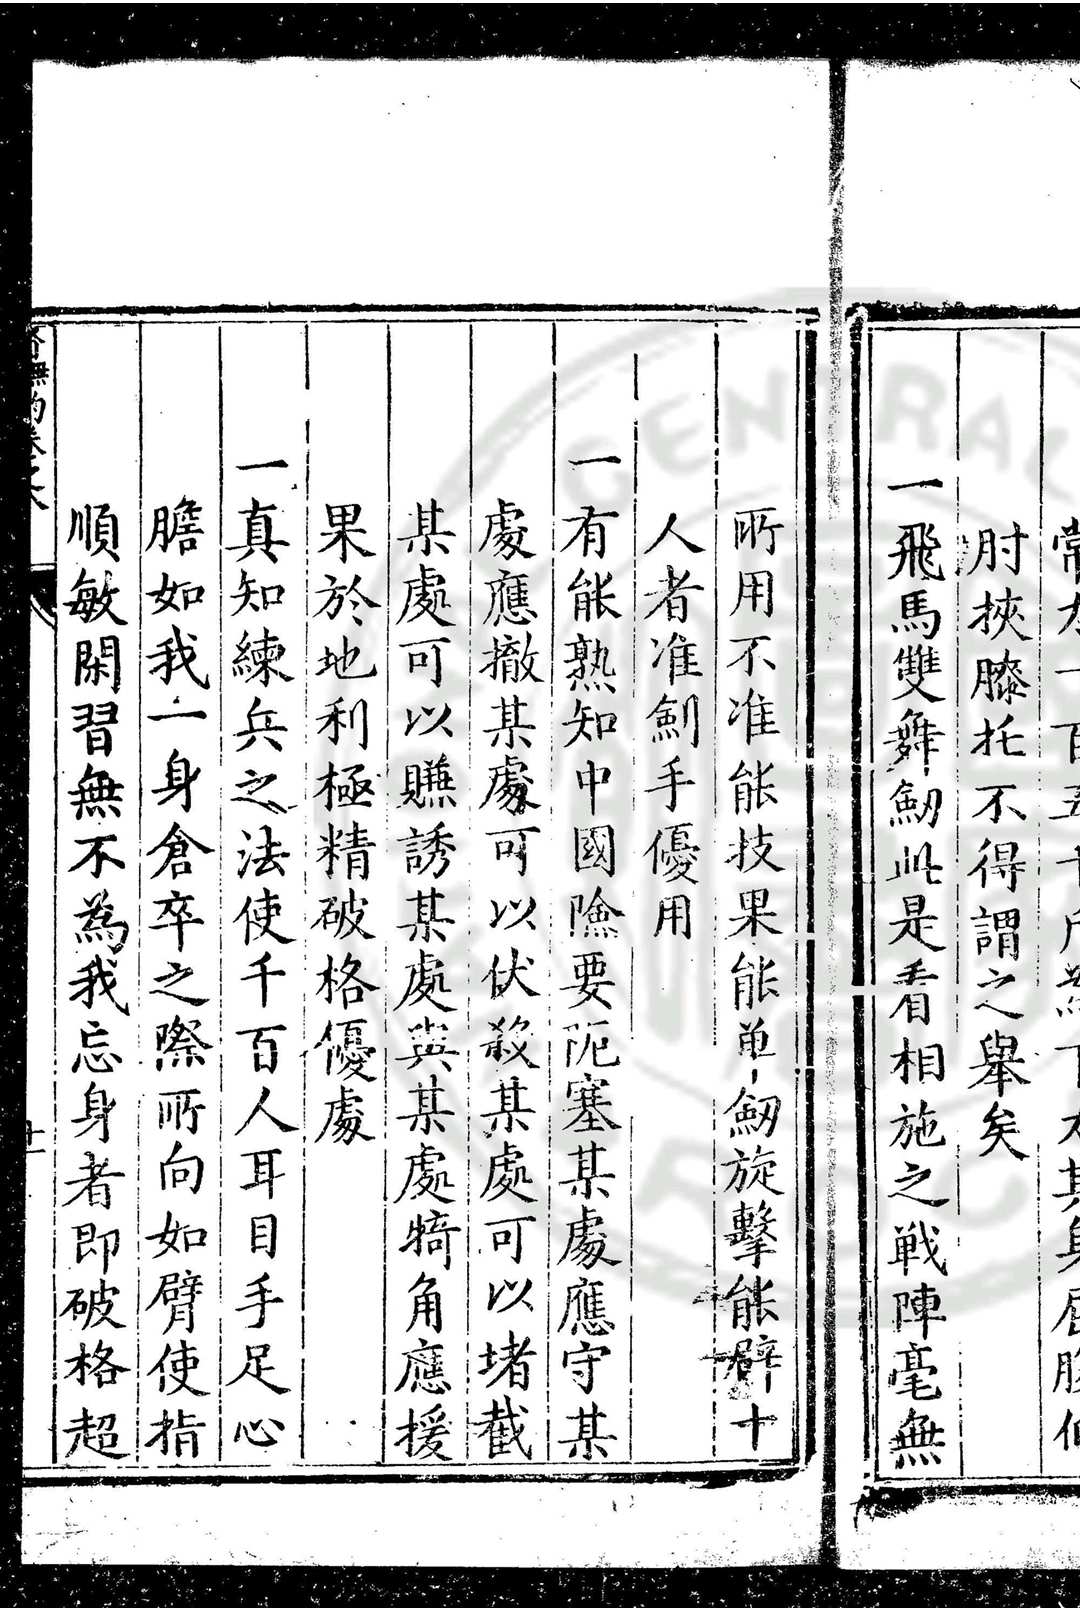 常
一百五十斤
肘挾膝托不得謂之舉矣
一飛馬雙舞劒此是看相施之戰陣毫無
所用不准能技果能单劒旋擊能辟十
人者准劍手優用
一有能熟知中國險要阨塞某處應守某
處應撤某處可以伏殺某處可以堵截
某處可以賺誘某處與某處犄角應援
果於地利極精破格優處
一真知練兵之法使千百人耳目手足心
膽如我一身倉卒之際所向如臂使指
順敏閑習無不為我忘身者即破格超
CENTRAL